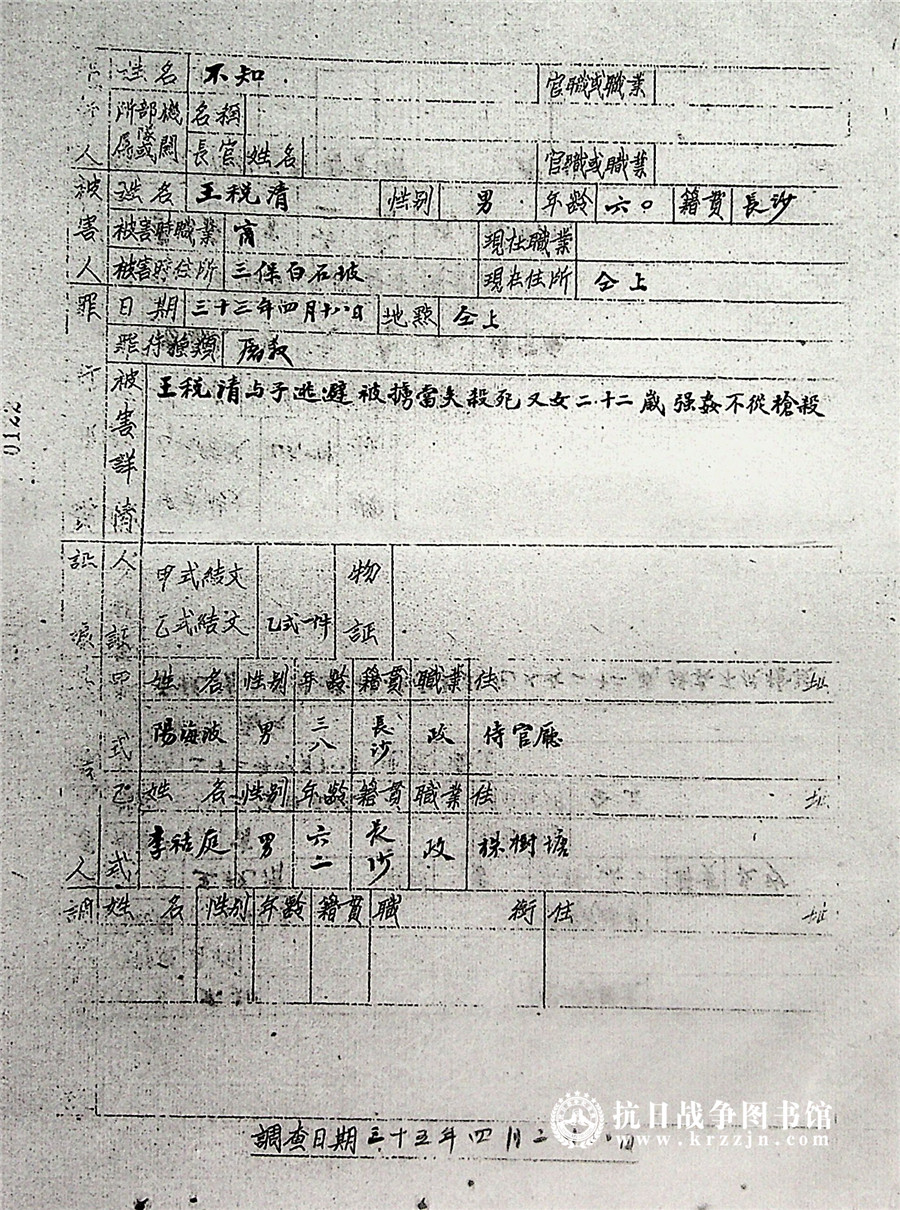 姓名 不知 官職或職業
行 所部機 名稱
人 屬隊關 長官 姓名 官職或職業
被 姓名 王税清 性别 男 年齡 六〇 籍貫 長沙
害 被害時職業 商 現在職業
人 被害時住所 三保白石坡 現在住所 仝上
罪 日期 三十三年四月十八日 地點 仝上
罪行種類 屠殺
行 被害詳情 王税清与子逃避被擄當失殺死又女二十二歲强姦不從槍殺
0122
証 人 甲式結文 物
乙式結文 乙式一件 証
甲 姓名 性别 年齡 籍貫 職業 住址
式 陽海波 男 三八 長沙 政 侍官廳
乙 姓名 性别 年齡 籍貫 職業 住址
人 式 李祜庭 男 六二 长沙 政 株樹塘
調 姓名 性别 年齡 籍貫 職銜 住址
調查日期 三十五年四月二 日
抗日战争图书馆
www.krzzjn.com